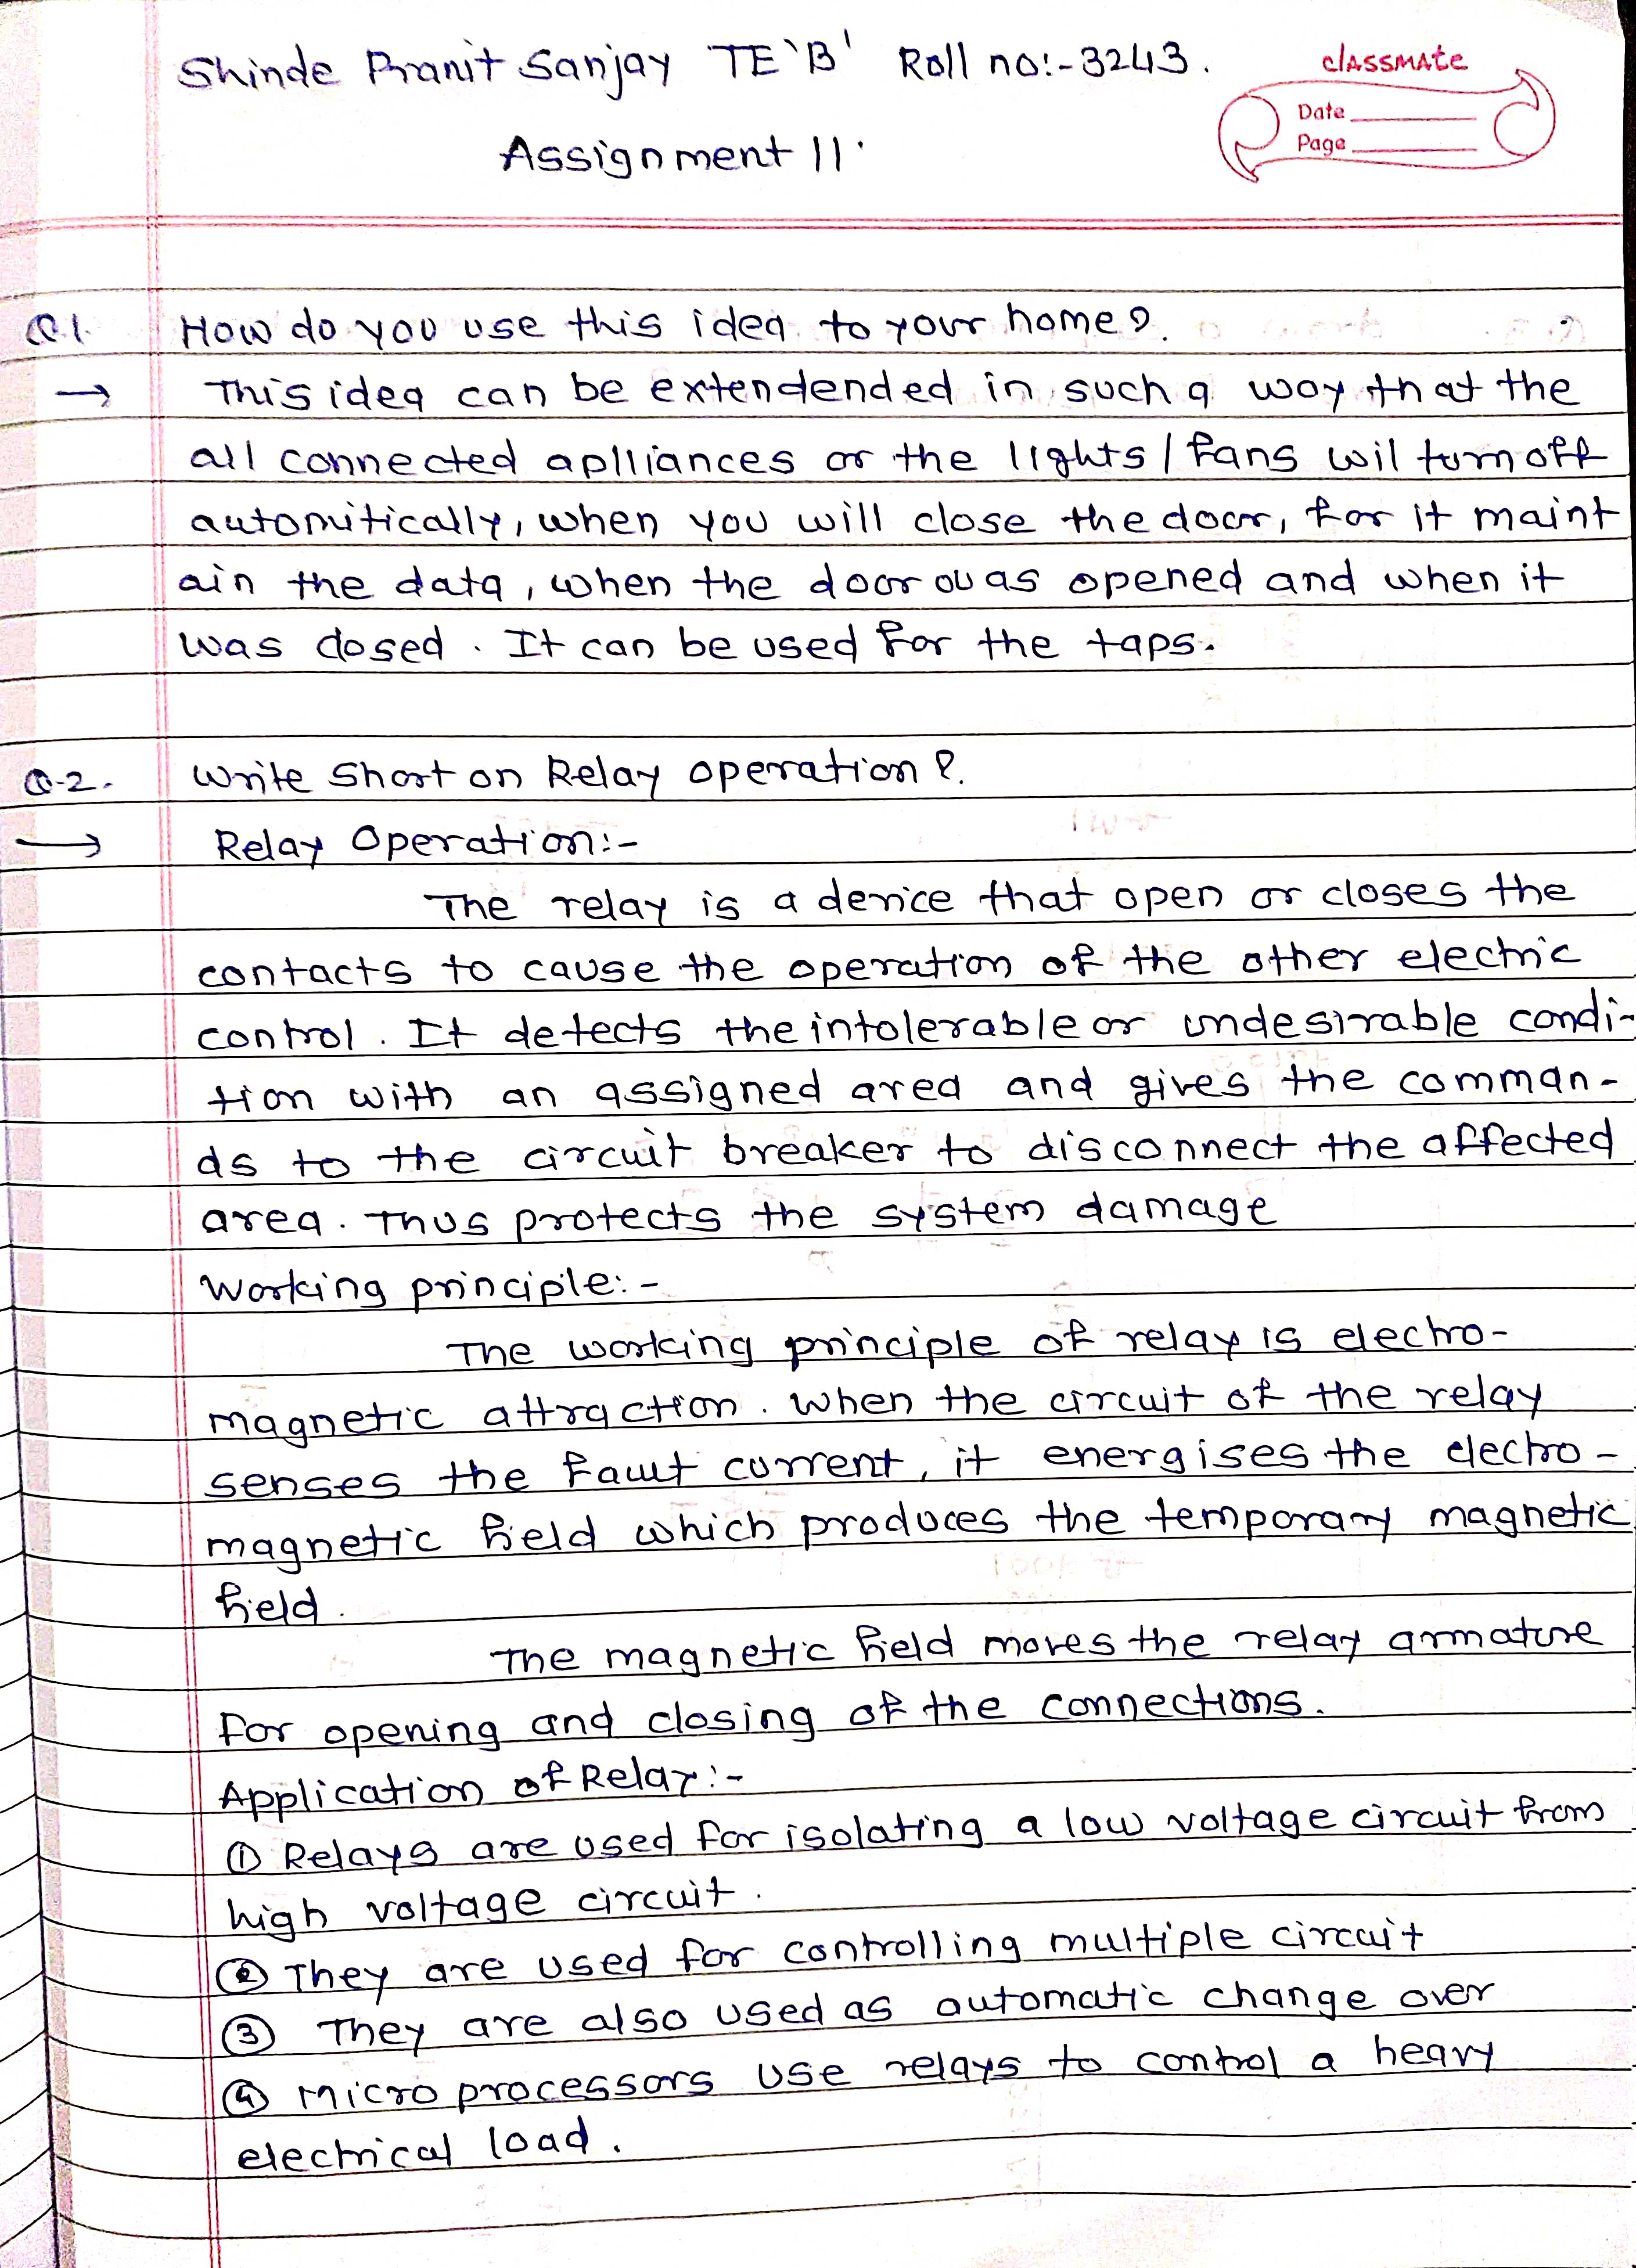 Shinde Pranit Sanjay TE 'B' Roll no:- 3243.
classmate
Date
Page
Assignment 11.
Q.1. How do you use this idea to your home?
→ This idea can be extendended in such a way that the
all connected aplliances or the lights / fans wil turn off
automitically, when you will close the door, for it maint
ain the data, when the door ouas opened and when it
was closed. It can be used for the taps.
Q-2. Write Short on Relay operation?.
→ Relay Operation:-
The relay is a device that open or closes the
contacts to cause the operation of the other electric
control. It detects the intolerable or undesirable condi-
tion with an assigned area and gives the comman-
ds to the circuit breaker to disconnect the affected
area. Thus protects the system damage
Working principle:-
The working principle of relay is electro-
magnetic attraction. When the circuit of the relay
senses the fault current, it energises the electro-
magnetic field which produces the temporary magnetic
field.
The magnetic field moves the relay armature
for opening and closing of the connections.
Application of Relay:-
① Relays are used for isolating a low voltage circuit from
high voltage circuit.
② They are used for controlling multiple circuit
③ They are also used as automatic change over
④ Microprocessors use relays to control a heavy
electrical load.